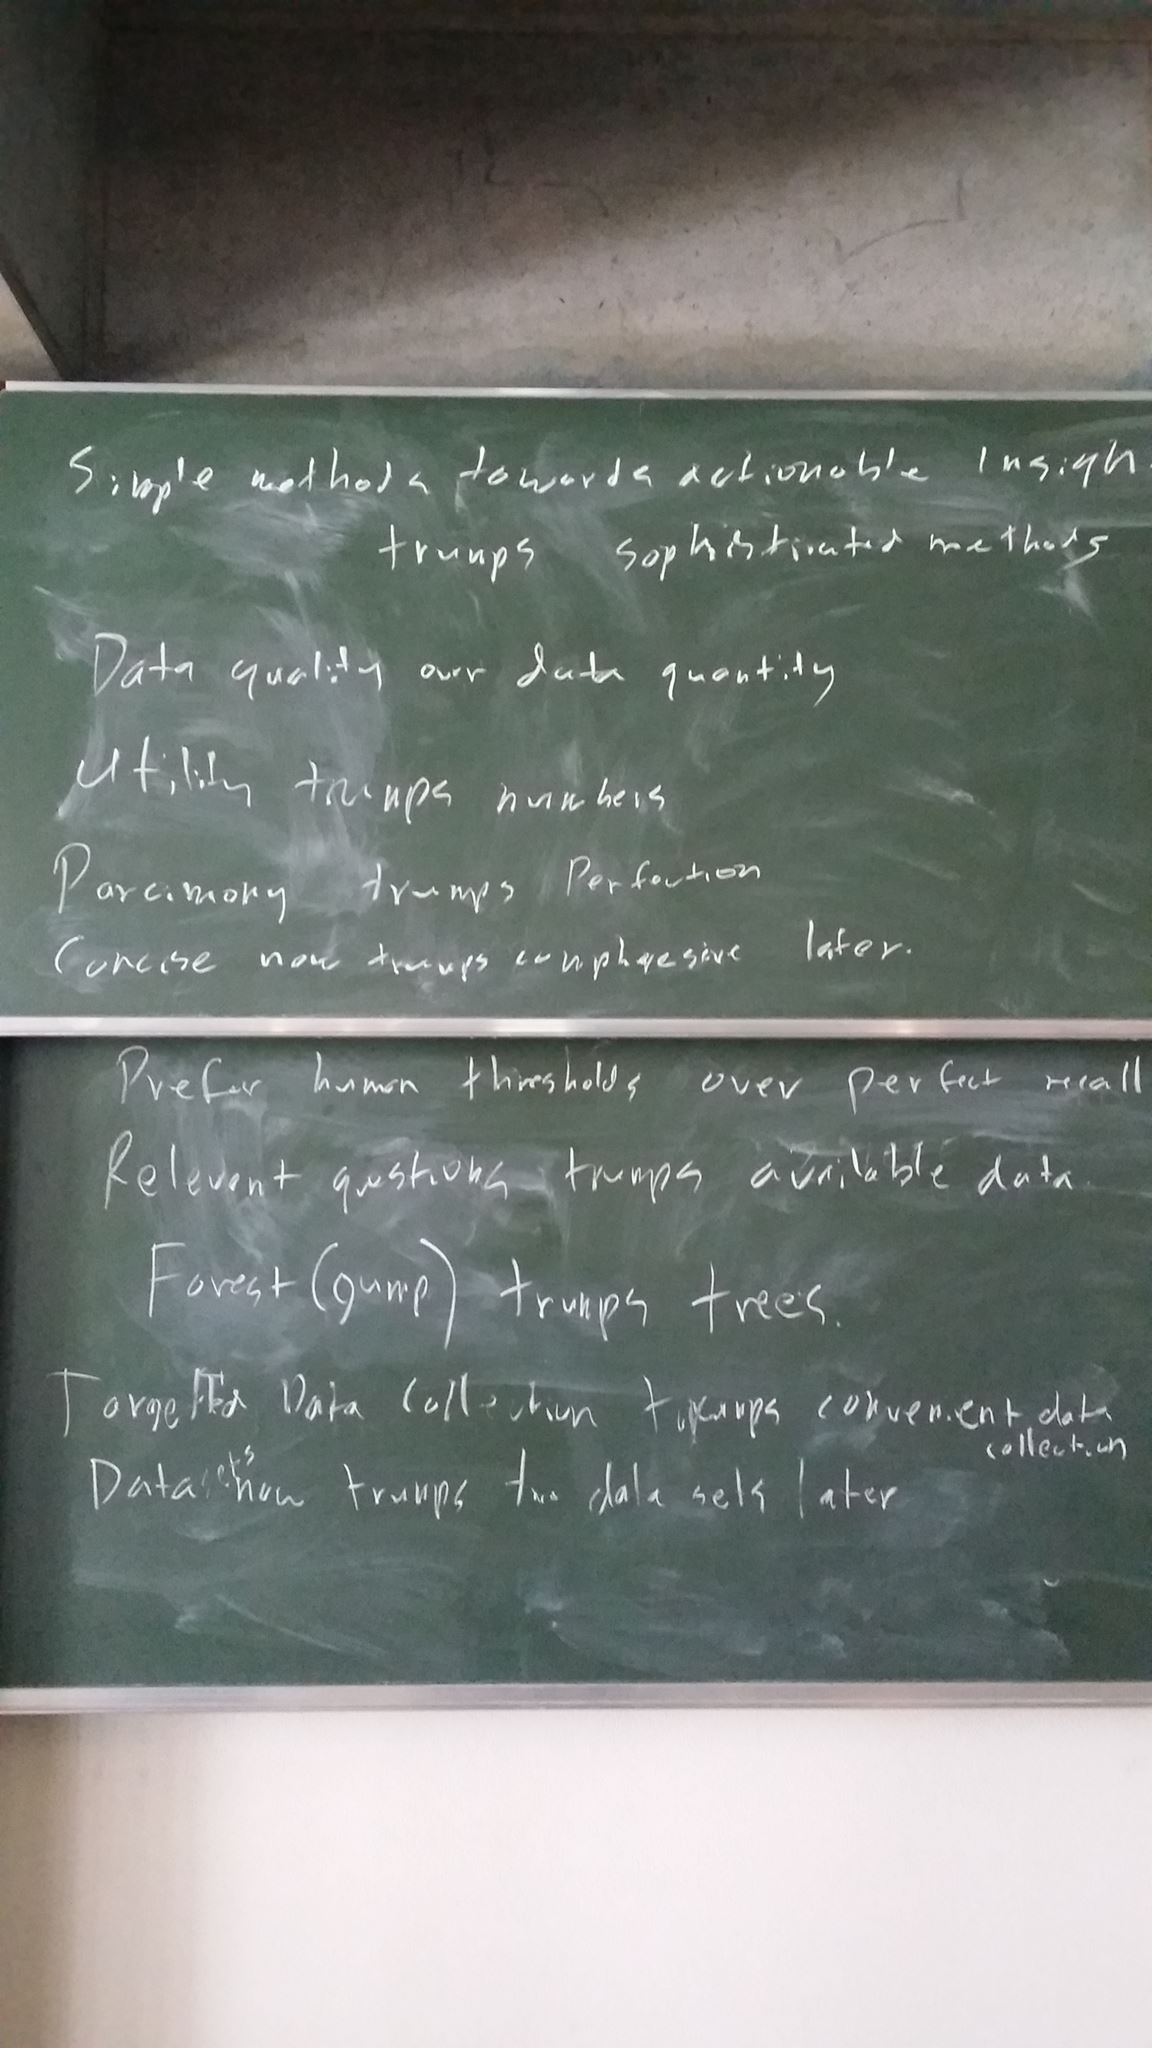 Simple methods towards actionable Insigh
trumps sophisticated methods
Data quality over data quantity
Utility trumps numbers
Parcimony trumps Perfection
Concise now trumps later.
Prefer human thresholds over perfect recall
Relevent questions trumps available data.
Forest (gump) trumps trees.
Targetted Data Collection trumps convenient data
collection
Datasets now trumps data sets later